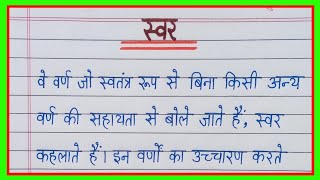 स्वर
वे वर्ण जो स्वतंत्र रूप से बिना किसी अन्य
वर्ण की सहायता से बोले जाते हैं; स्वर
कहलाते हैं। इन वर्णों का उच्चारण करते